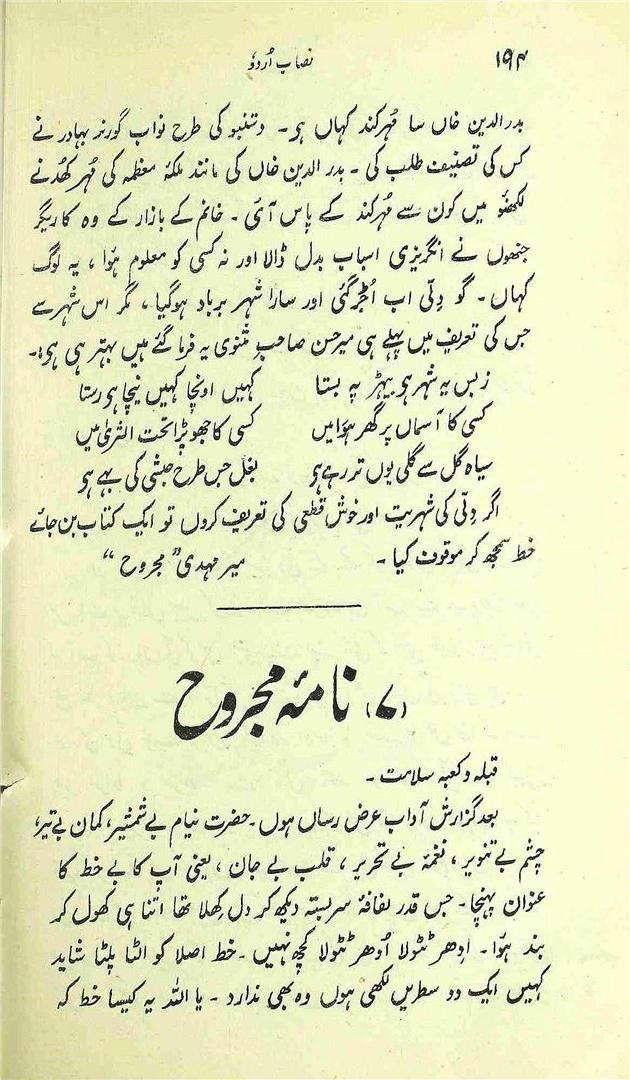 ۱۹۴ نصاب اُردو
بدرالدین خاں سا مُہرکند کہاں ہو۔ دستنبو کی طرح نواب گورنر بہادر نے
کس کی تصنیف طلب کی۔ بدر الدین خاں کی مانند ملکۂ معظمہ کی مُہر کھُدنے
لکھنؤ میں کون سے مُہرکند کے پاس آئی۔ خانم کے بازار کے وہ کاریگر
جنھوں نے انگریزی اسباب بدل ڈالا اور نہ کسی کو معلوم ہؤا، یہ لوگ
کہاں۔ گو دِلّی اب اُجڑ گئی اور سارا شہر برباد ہوگیا، مگر اس شہر سے
جس کی تعریف میں پہلے ہی میرحسن صاحبِ مثنوی یہ فرما گئے ہیں بہتر ہی ہو:۔
زبس یہ شہر ہو بیہڑ پہ بستا کہیں اونچا کہیں نیچا ہو رستا
کسی کا آسماں پر گھر ہؤا میں کسی کا جھوپڑا تحت الثریٰ میں
سیاہ گل سے گلی یوں تر رہے ہو بغل جس طرح حبشی کی بہے ہو
اگر دِلّی کی شہریت اور خوش قطعی کی تعریف کروں تو ایک کتاب بن جائے
خط سمجھ کر موقوف کیا۔ میر مہدی مجروح “
(۷) نامۂ مجروح
قبلہ و کعبہ سلامت۔
بعد گزارش آداب عرض رساں ہوں۔ حضرت نیام بے شمشیر، کمان بے تیر،
چشم بے تنویر، نغمۂ بے تحریر، قلب بے جان، یعنی آپ کا بے خط کا
عنوان پہنچا۔ جس قدر لفافۂ سربستہ دیکھ کر دل کھِلا تھا اتنا ہی کھول کر
بند ہؤا۔ اِدھر ٹٹولا اُدھر ٹٹولا کچھ نہیں۔ خط اصلا کو الٹا پلٹا شاید
کہیں ایک دو سطریں لکھی ہوں وہ بھی ندارد۔ یا اللہ یہ کیسا خط کہ